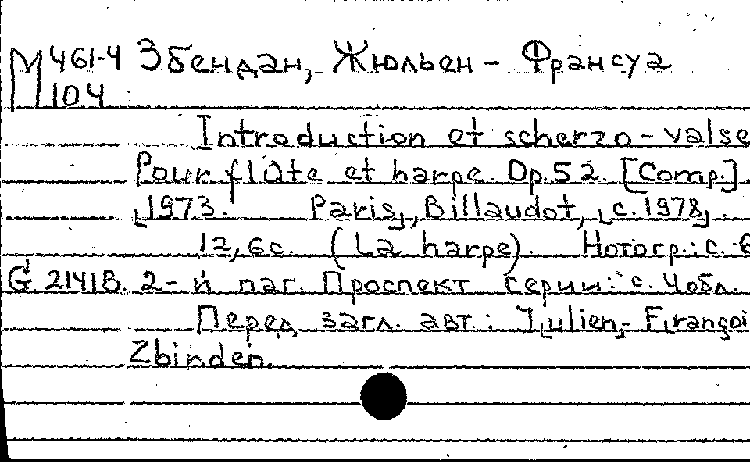 М 461-4 Збендан, Жюльен - Франсуа
104
Introduction et scherzo-valse
Pour flûte et harpe. Op. 52. [Comp.]
1973. Paris, Billaudot, с. 1978.
12, 6 с. (La harpe). Нотогр.: с. 6
G 2141 B. 2-й паг. Проспект серии: с. 4 обл.
Перед загл. авт.: Julien-Françoi
Zbinden.